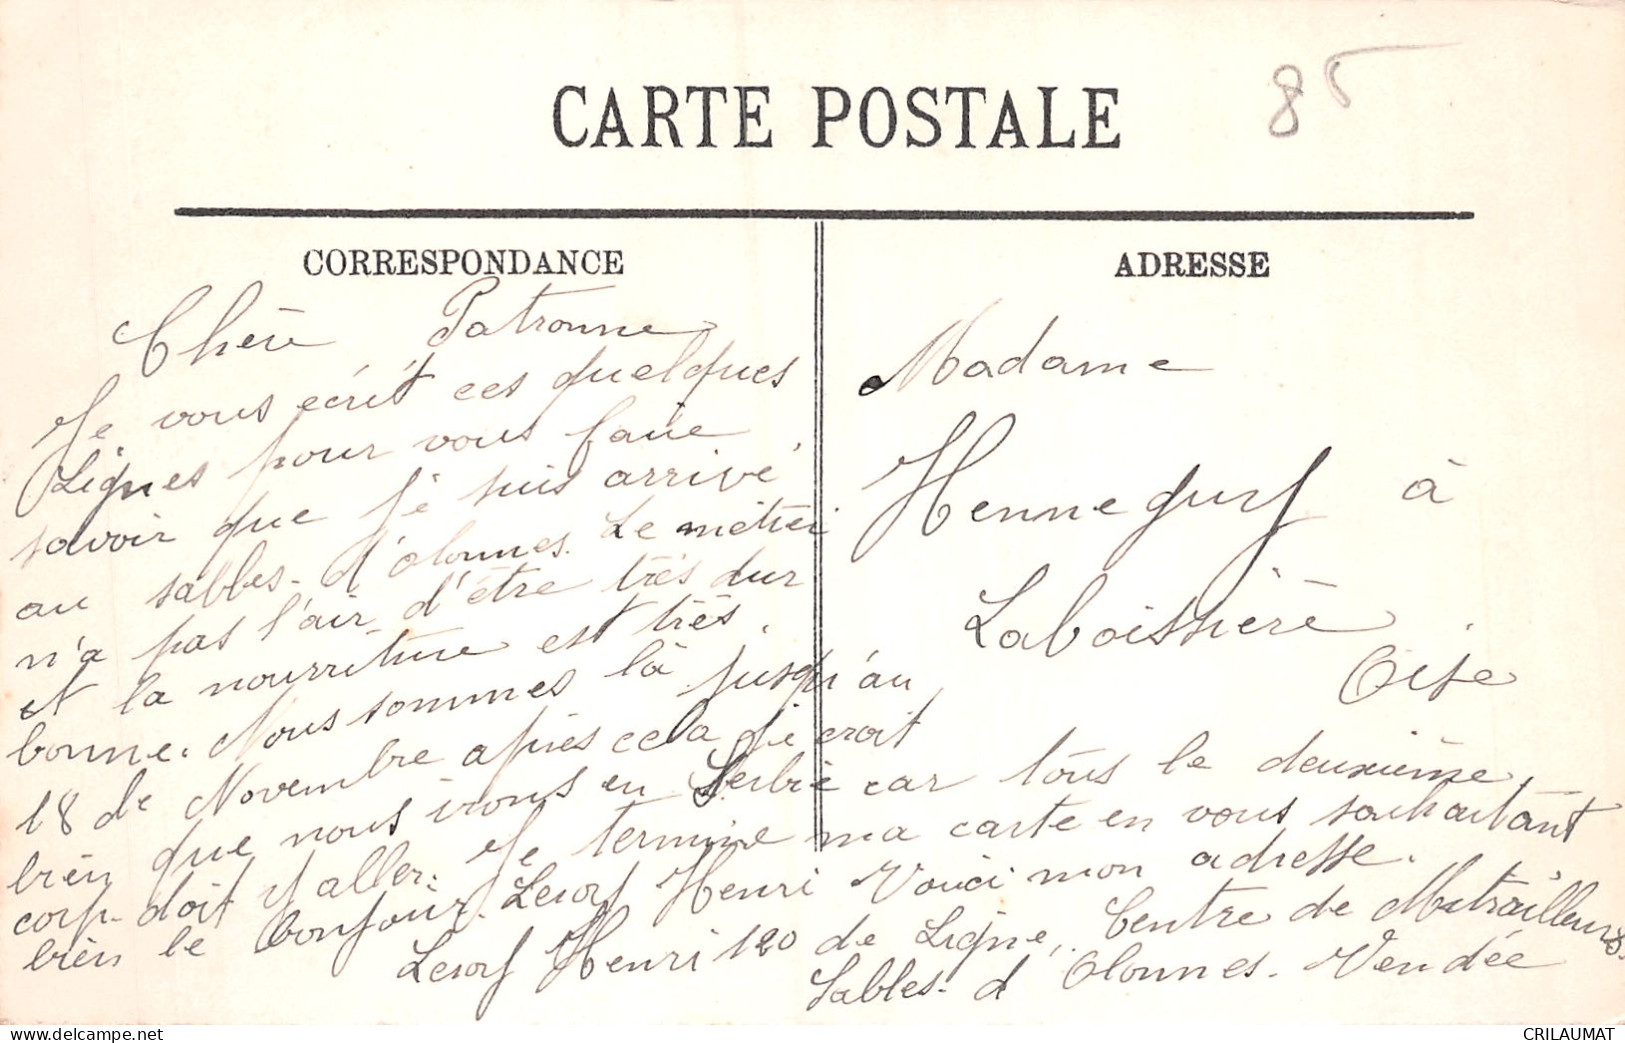 CARTE POSTALE
85
CORRESPONDANCE
Chère Patronne
Je vous écrit ces quelques
Lignes pour vous faire
savoir que je suis arrivé
au sabbles-d'olonnes. Le métier
n'a pas l'air d'être très dur
et la nourriture est très
bonne. Nous sommes là jusqu'au
18 de Novembre après cela je croit
bien que nous irons en Serbie car tous le deuxième
corp-doit y aller. Je termine ma carte en vous souhaitant
bien le bonjour. Henri Voici mon adresse.
Henri 120 de Ligne, Centre de Mitrailleurs
Sables-d'Olonnes. Vendée
ADRESSE
Madame
à
Laboissière
Oise
CRILAUMAT